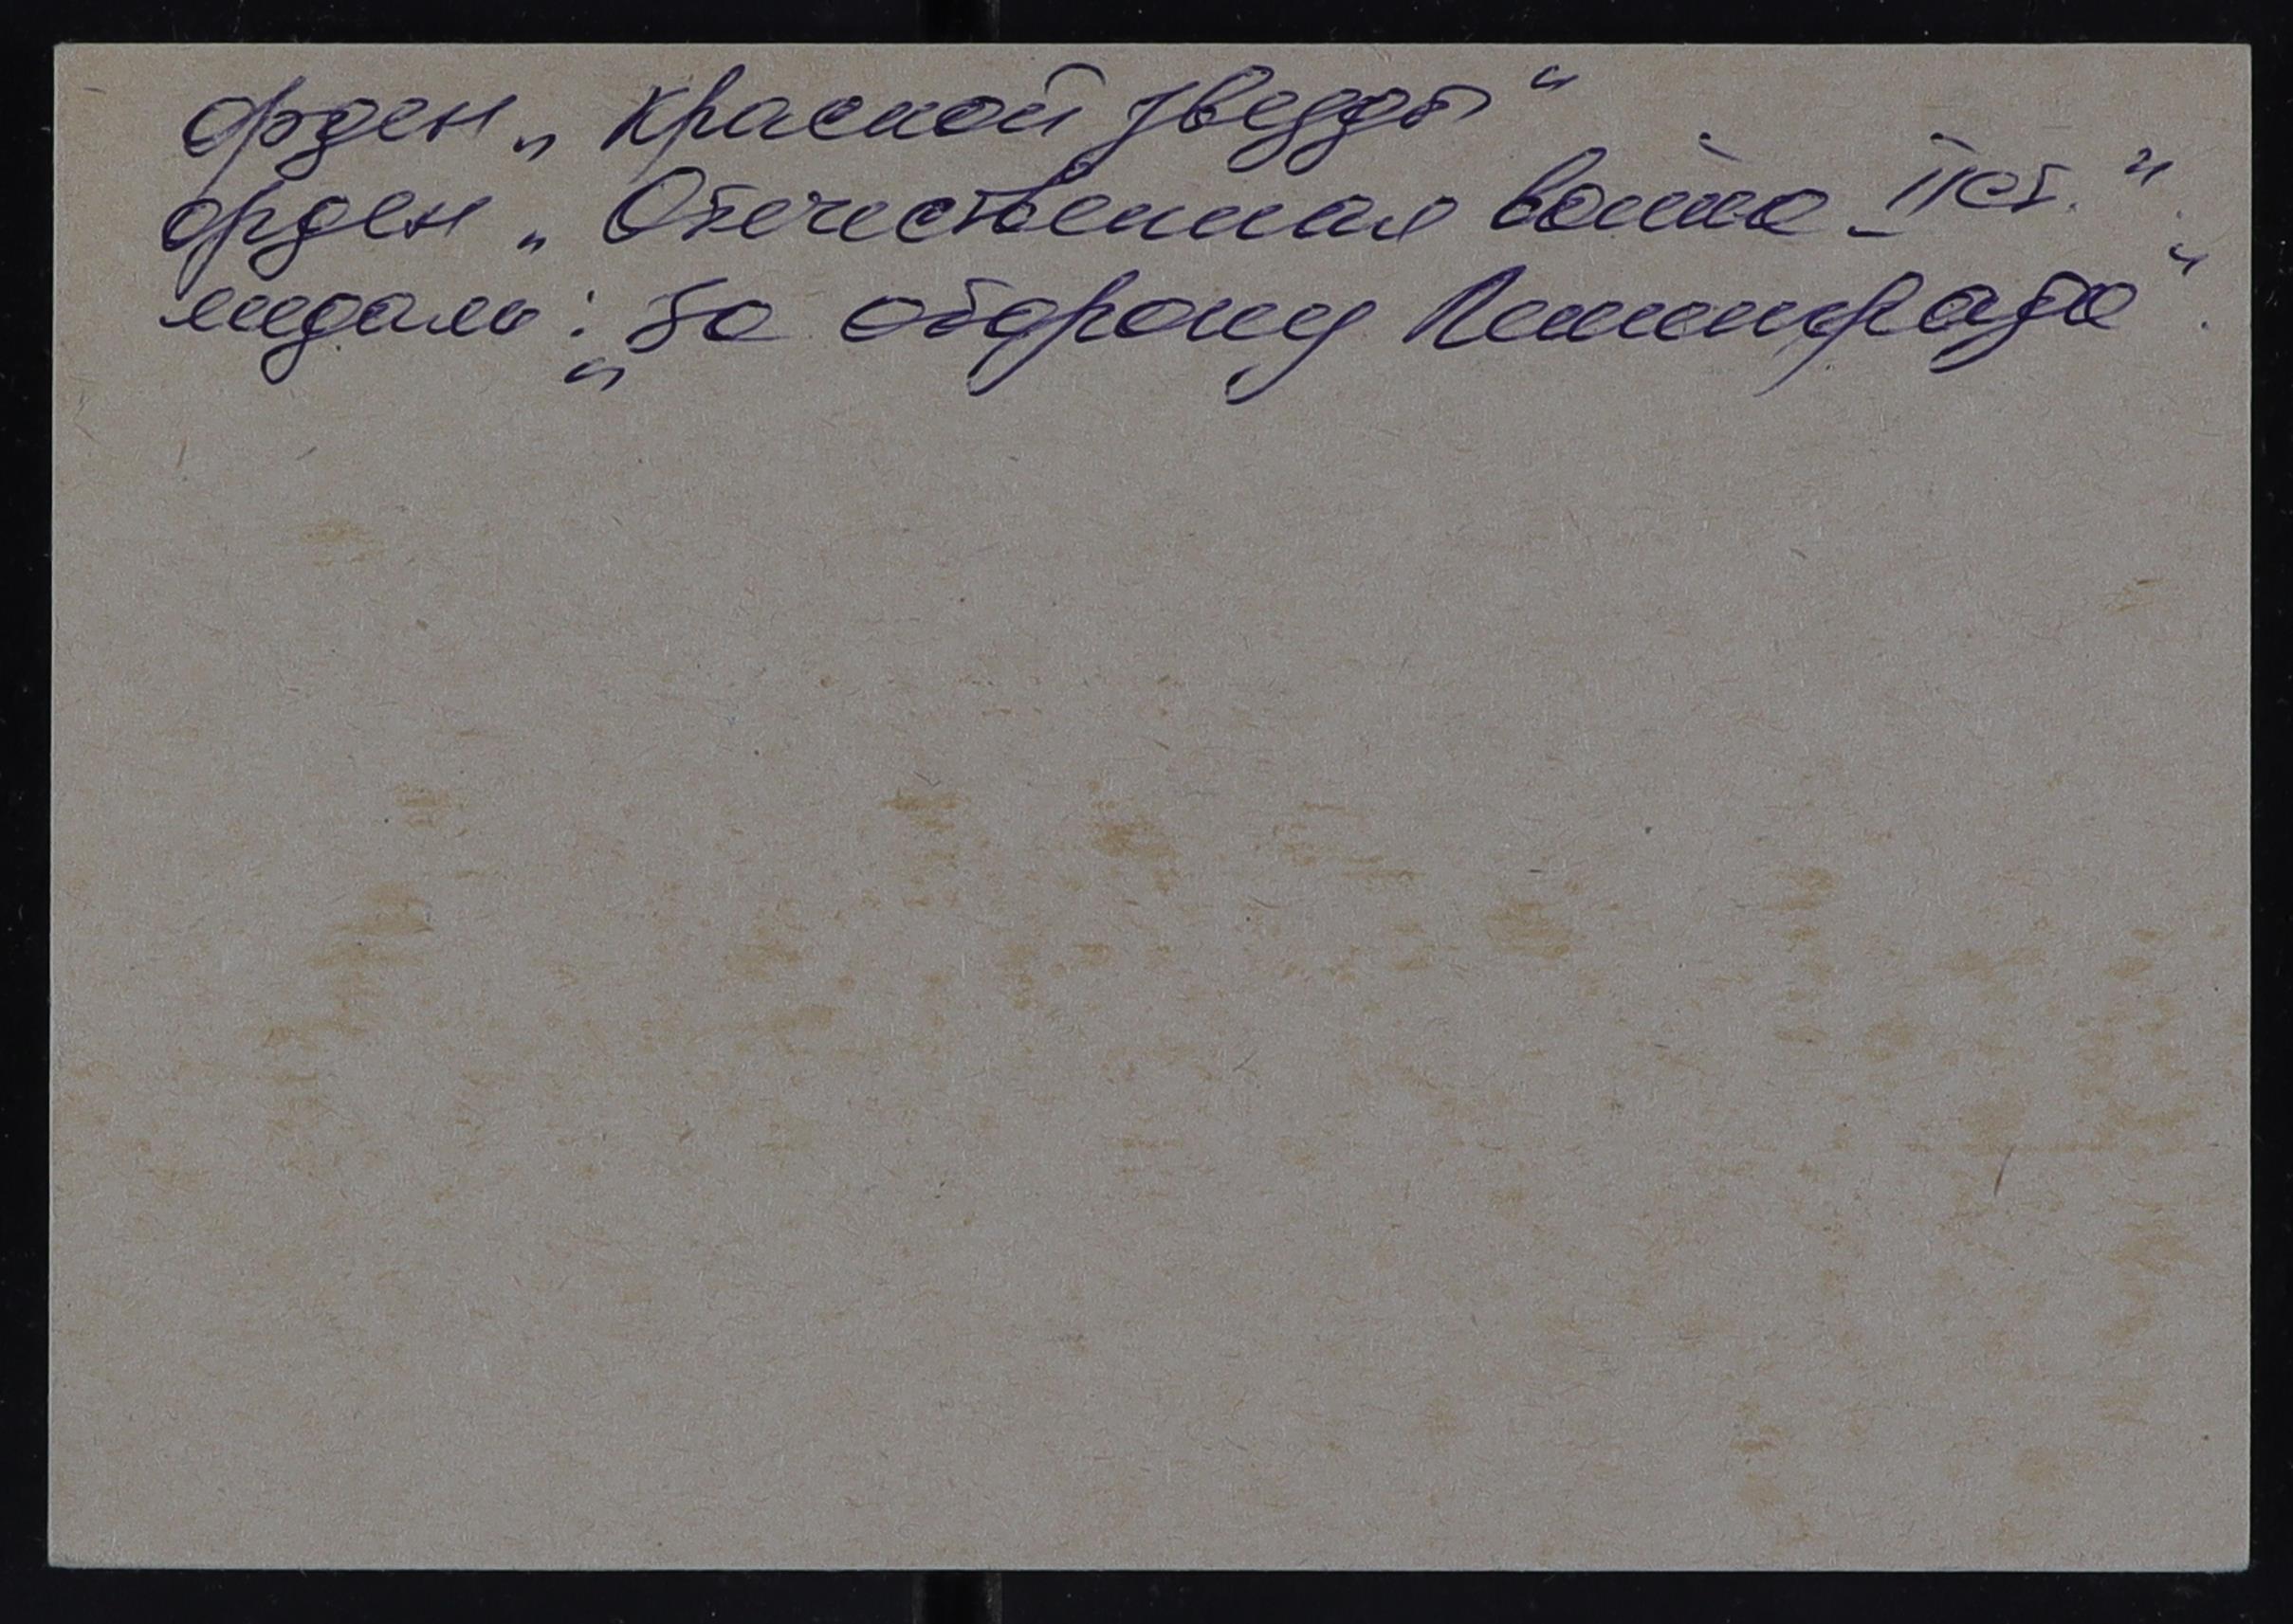 орден „Красной звезды“
орден „Отечественная война II ст.“
медаль: „За оборону Ленинграда“.